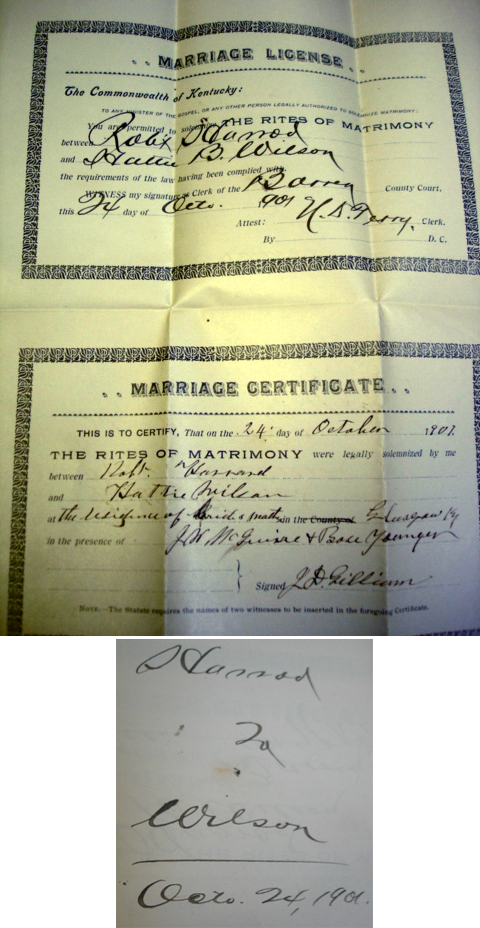 MARRIAGE LICENSE
The Commonwealth of Kentucky:
TO ANY MINISTER OF THE GOSPEL, OR ANY OTHER PERSON LEGALLY AUTHORIZED TO SOLEMNIZE MATRIMONY:
You are permitted to solemnize THE RITES OF MATRIMONY
between Robt Harrod
and Hattie B. Wilson
the requirements of the law having been complied with.
WITNESS my signature Clerk of the Barren County Court.
this 24 day of Octo. 1901
Attest: Terry, Clerk.
By D. C.
MARRIAGE CERTIFICATE
THIS IS TO CERTIFY, That on the 24 day of October 1901.
THE RITES OF MATRIMONY were legally solemnized by me
between Robt. Harrard
and Hattie Wilson
at the residence of in the County of Glasgow Ky
in the presence of J. W. McGuire & Younger
Signed J. D. Gilliam
NOTE.—The Statute requires the names of two witnesses to be inserted in the foregoing Certificate.
Harrod
To
Wilson
Octo. 24, 1901.